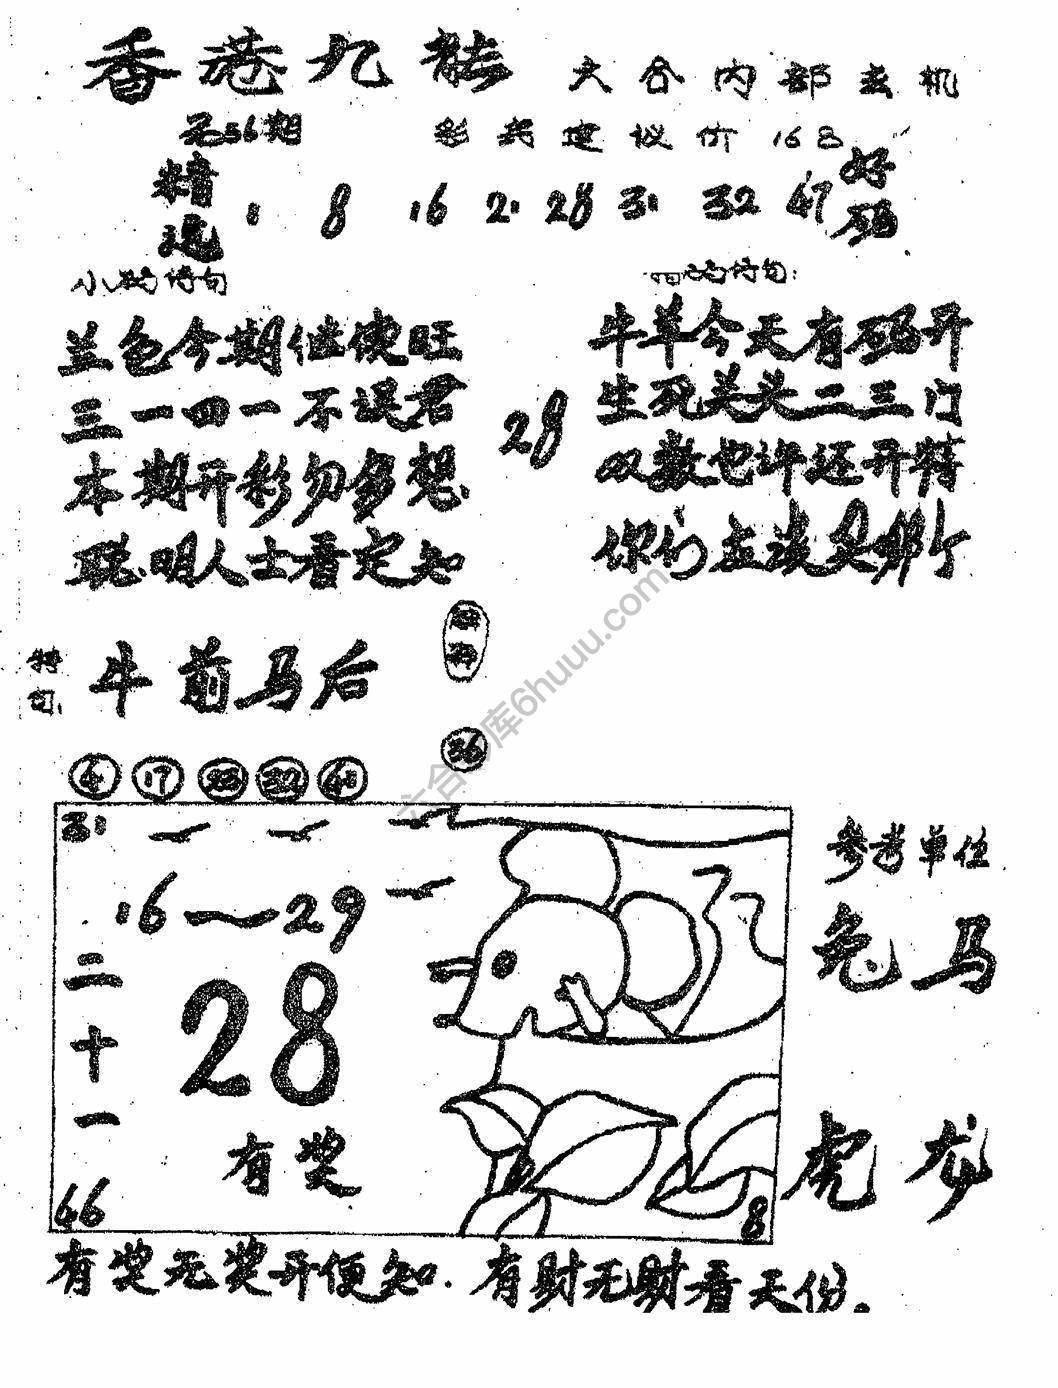 香港九龙
六合内部玄机
第56期
彩民建议价168
精选
1 8 16 21 28 31 32 47
好码
诗句
诗句:
兰色今期继使旺
三一四一不误君
本期开彩勿多想
聪明人士看定知
28
牛羊今天有码开
生死关头二三门
双数也许还开特
你们应该
特句:
牛前马后
36
4 17 23 32 41
六合图库6huuu.com
31
16—29
二十一
28
有奖
46
8
参考单位
兔马
虎龙
有奖无奖开便知.有财无财看天份。